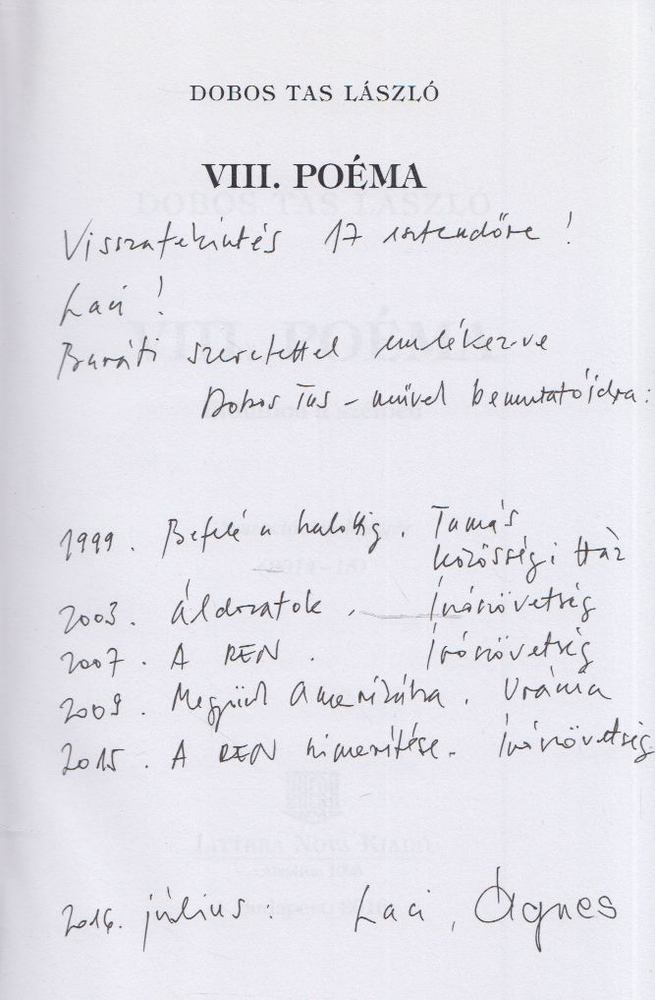 DOBOS TAS LÁSZLÓ
VIII. POÉMA
Visszatekintés 17 esztendőre!
Laci!
Baráti szeretettel emlékezve
Dobos Tas – művek bemutatójára:
1999. Befelé a halálig. Tamás
Közösségi Ház
2003. Áldozatok. Írószövetség
2007. A REND. Írószövetség
2009. Amerikába. Uránia
2015. A REND kimerítése. Írószövetség
2016. július. Laci, Ágnes